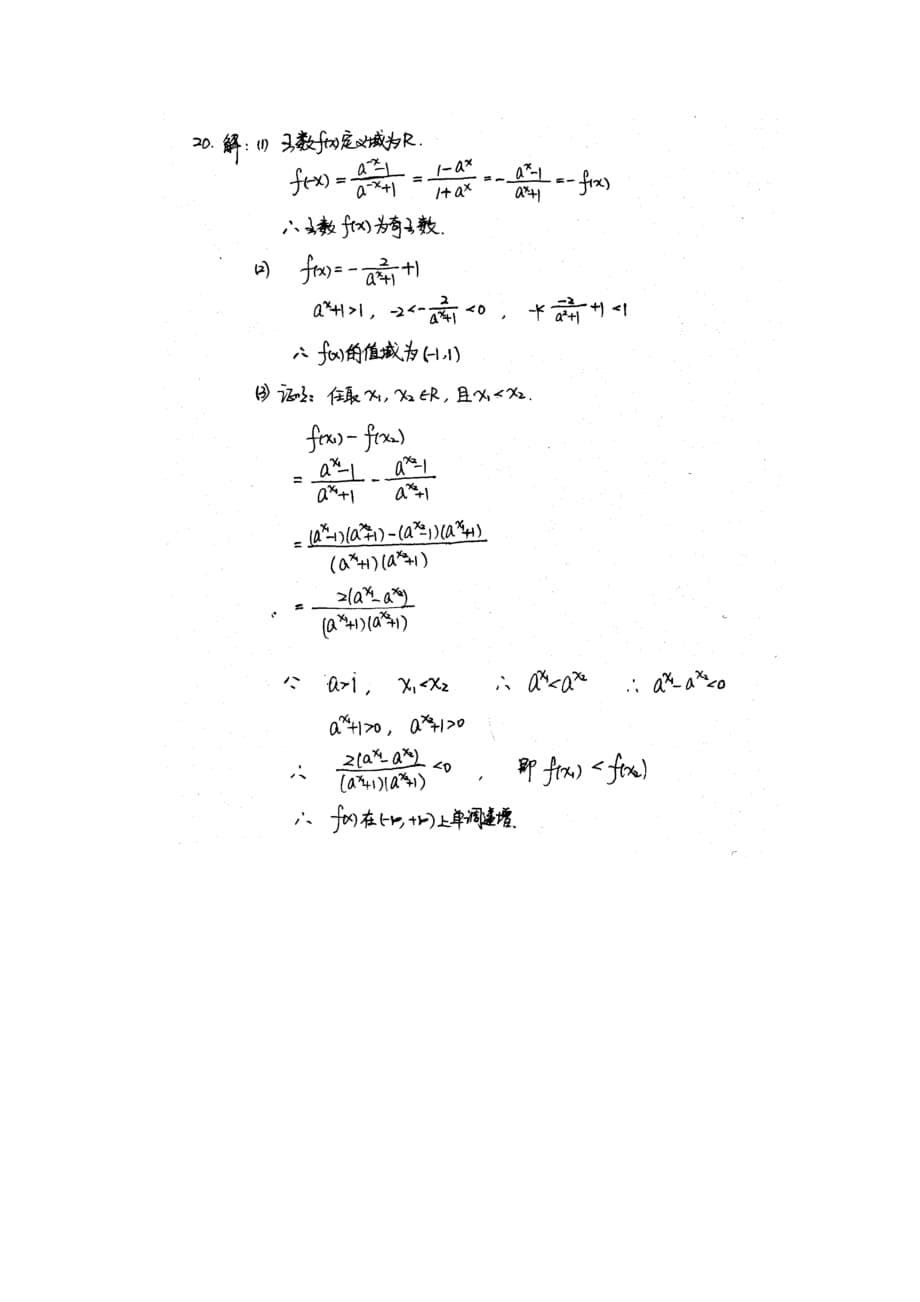 20. 解: (1) 函数f(x)定义域为R.
f(-x) = \frac{a^{-x}-1}{a^{-x}+1} = \frac{1-a^x}{1+a^x} = -\frac{a^x-1}{a^x+1} = -f(x)
∴函数 f(x)为奇函数.
(2) f(x) = -\frac{2}{a^x+1}+1
a^x+1>1, -2<-\frac{2}{a^x+1}<0, \frac{-2}{a^2+1}+1<1
∴ f(x)的值域为(-1,1)
(3) 证明: 任取 x_1, x_2∈R, 且x_1<x_2.
f(x_1)-f(x_2)
= \frac{a^{x_1}-1}{a^{x_1}+1} - \frac{a^{x_2}-1}{a^{x_2}+1}
= \frac{(a^{x_1}-1)(a^{x_2}+1)-(a^{x_2}-1)(a^{x_1}+1)}{(a^{x_1}+1)(a^{x_2}+1)}
= \frac{2(a^{x_1}-a^{x_2})}{(a^{x_1}+1)(a^{x_2}+1)}
∵ a>1, x_1<x_2 ∴ a^{x_1}<a^{x_2} ∴ a^{x_1}-a^{x_2}<0
a^{x_1}+1>0, a^{x_2}+1>0
∴ \frac{2(a^{x_1}-a^{x_2})}{(a^{x_1}+1)(a^{x_2}+1)}<0, 即 f(x_1)<f(x_2)
∴ f(x)在(-∞,+∞)上单调递增.